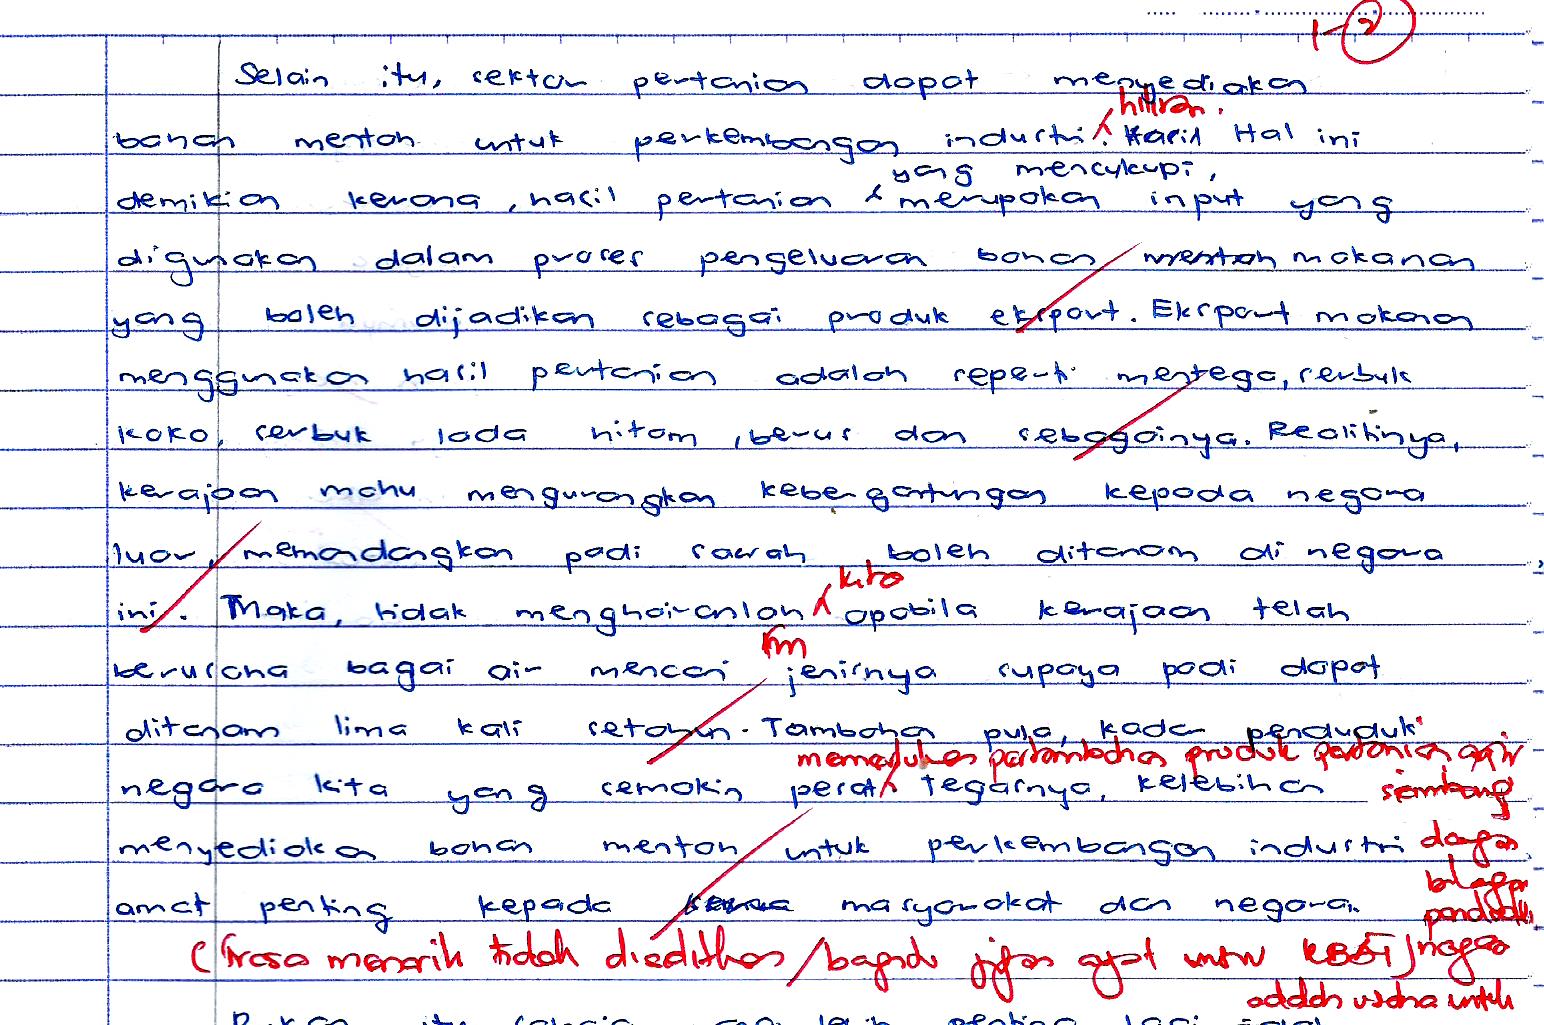 1-2
Selain itu, sektor pertanian dapat menyediakan
hiliran.
bahan mentah untuk perkembangan industri. Hasil Hal ini
yang mencukupi,
demikian kerana, hasil pertanian merupakan input yang
digunakan dalam proses pengeluaran bahan mentah makanan
yang boleh dijadikan sebagai produk eksport. Eksport makanan
menggunakan hasil pertanian adalah seperti mentega, serbuk
koko, serbuk lada hitam, berus dan sebagainya. Realitinya,
kerajaan mahu mengurangkan kebergantungan kepada negara
luar, memandangkan padi sawah boleh ditanam di negara
kita
ini. Maka, tidak menghairanlah apabila kerajaan telah
berusaha bagai air mencari jenisnya supaya padi dapat
ditanam lima kali setahun. Tambahan pula, kadar penduduk
memerlukan pertambahan produk pertanian agar
negara kita yang semakin pesat Tegasnya, kelebihan seimbang
menyediakan bahan mentah untuk perkembangan industri dengan
amat penting kepada masyarakat dan negara. bilangan
penduduk
(Frasa menarik tidak dieditkan /
negara
adalah usaha untuk